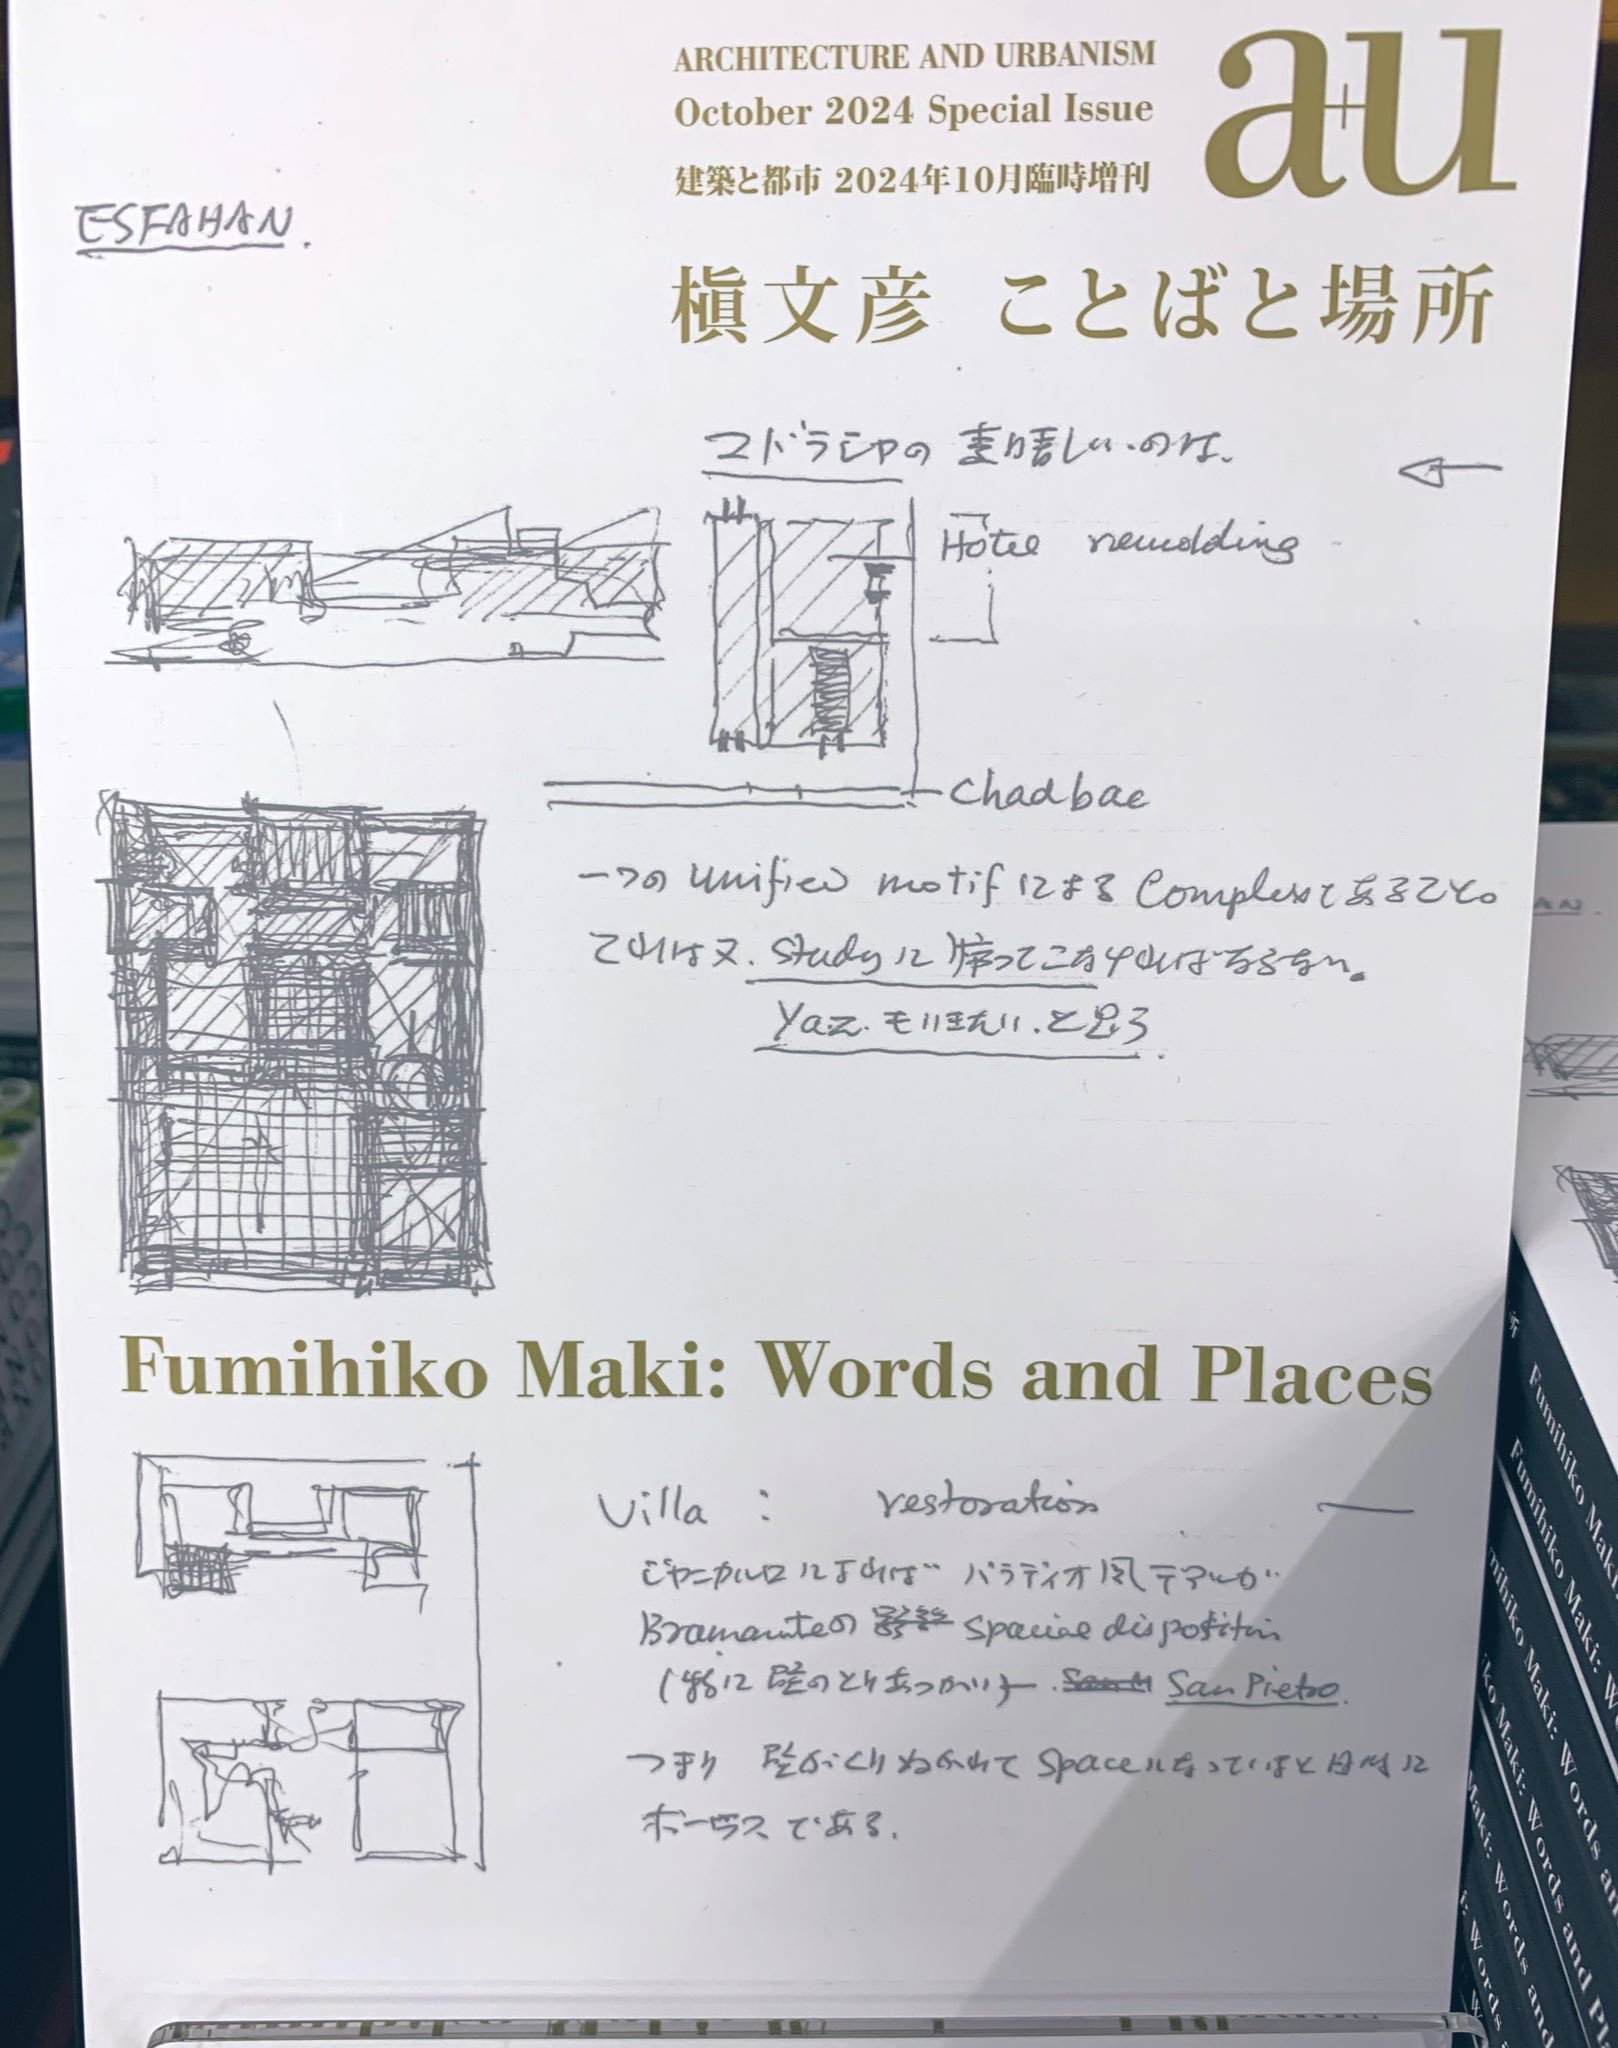 ARCHITECTURE AND URBANISM
October 2024 Special Issue
建築と都市 2024年10月臨時増刊
a+u
ESFAHAN.
槇文彦 ことばと場所
マドラシャの 素晴しいのは、
Hotel remodding
Chadbae
一つの unified motif による Complexであること。
これは又、Studyに帰ってこなければならない。
Yaz. も行きたい、と思う
Fumihiko Maki: Words and Places
Villa : restoration
ジャニカルロによれば パラディオ風
Bramanteの Spacial disposition
(特に 壁のとりあつかい) San Pietro.
つまり 壁がくりぬかれて Spaceになっている
である.
Fumihiko Maki:
Fumihiko Maki: Words an
Maki: Words and Pla